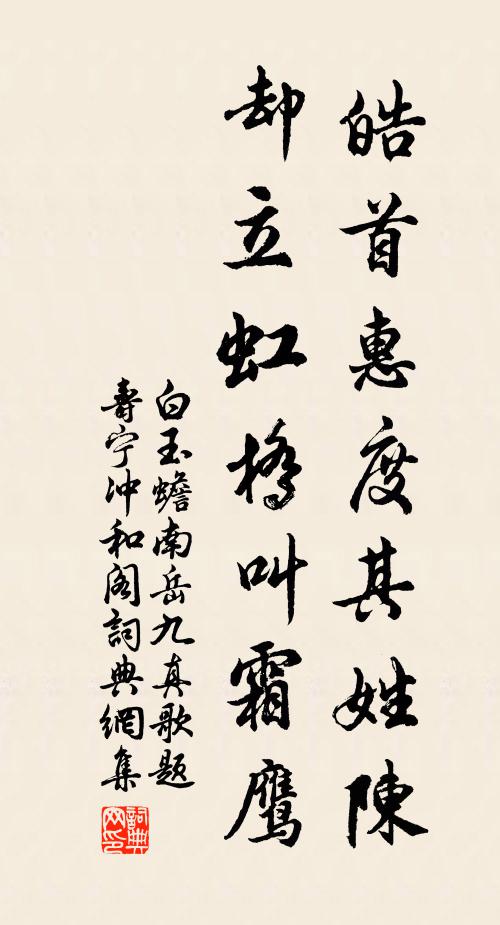 皓首惠度其姓陳
却立虹橋叫霜鷹
白玉蟾南岳九真歌題
壽宁冲和阁詞典網集
詞典网印